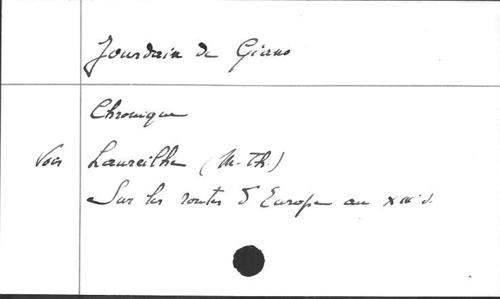 Jourdain de Giano
Chronique
Voir Laureilhe (M.-Th.)
Sur les routes d'Europe au XIIIe s.